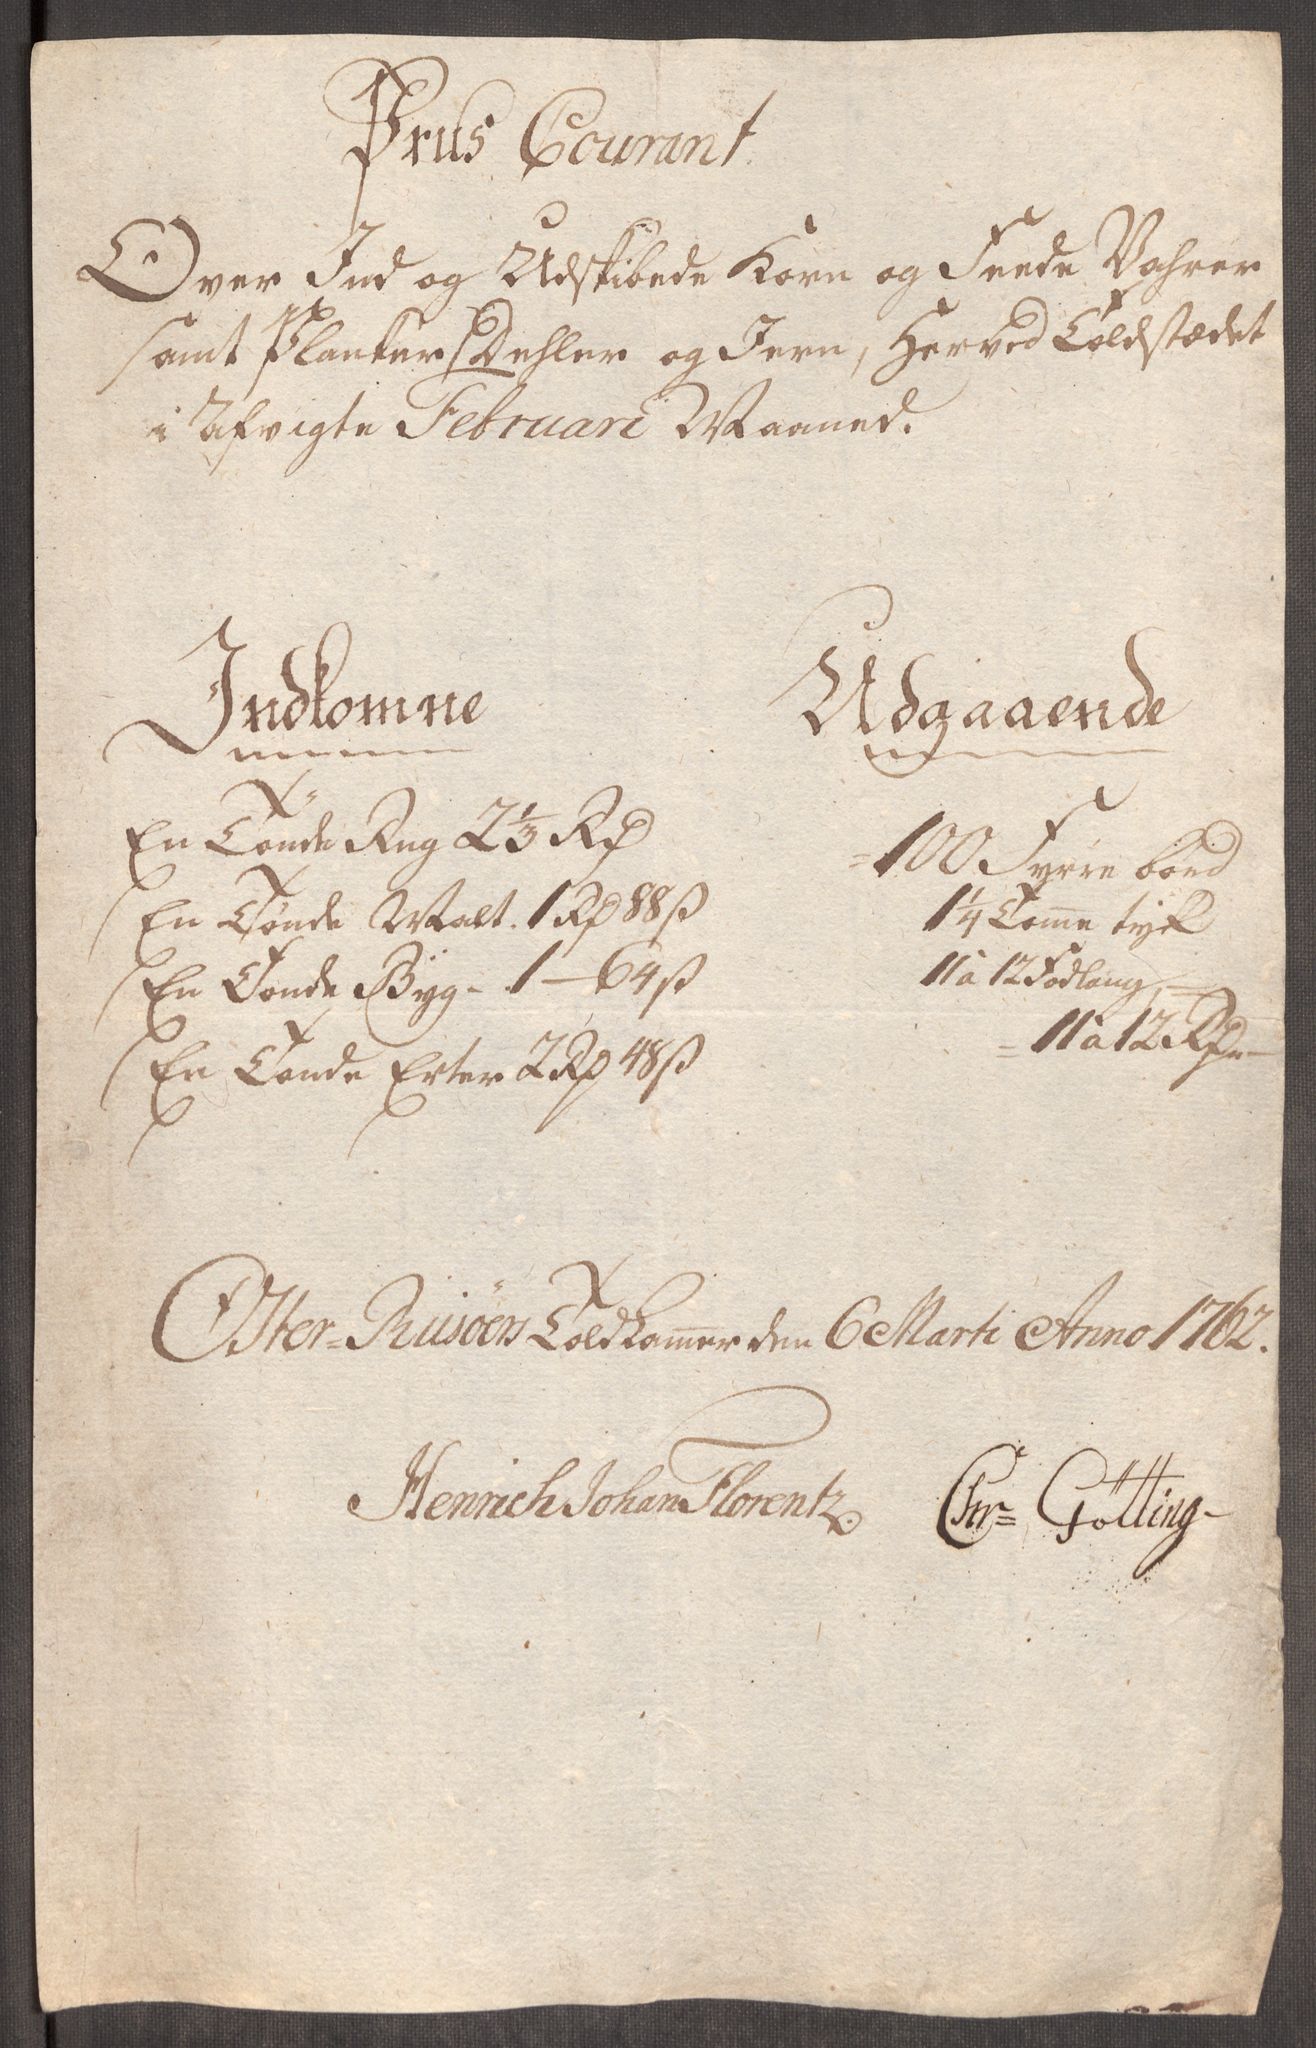 Prus Courant
Over Ind og Udskibede Korn og Feede Vahrer
samt Planker, Dehler og Jern, Herved Toldstædet
i Afvigte Februari Maaned.
Indkomne
En Tønde Rug 2 1/3 Rd
En Tønde Malt. 1 Rd 88 ß
En Tønde Byg - 1 - 64 ß
En Tønde Erter 2 Rd 48 ß
Udgaaende
= 100 Fyrre bord
1 1/4 Tomme tyk
11 à 12 Fod lang,
= 11 a 12 Rd
Oster-Riisöers Toldkammer den 6 Marti Anno 1762.
Henrich Johan Florentz.
Chr= Götting